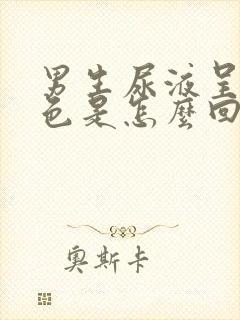 男生尿液呈
色是怎麼回
奧斯卡